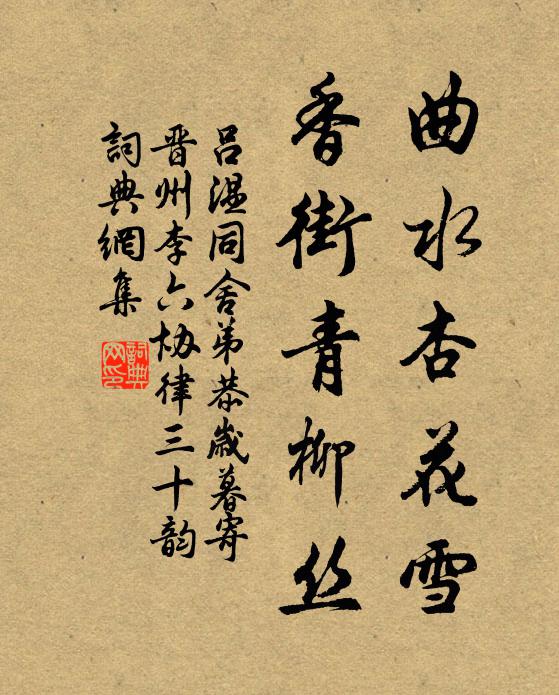 曲水杏花雪
香街青柳丝
吕温同舍弟恭歲暮寄
晋州李六協律三十韵
詞典網集
詞典網印